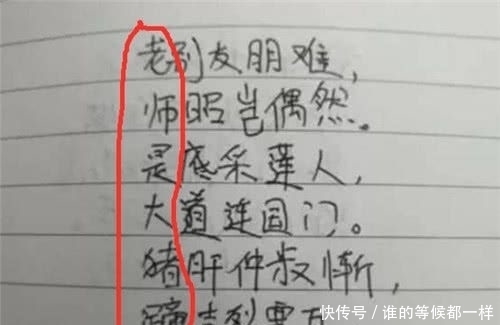 老别友朋难，
师昭岂偶然。
是底采莲人，
大道连国门。
猪肝仲叔惭，
快传号/谁的等候都一样